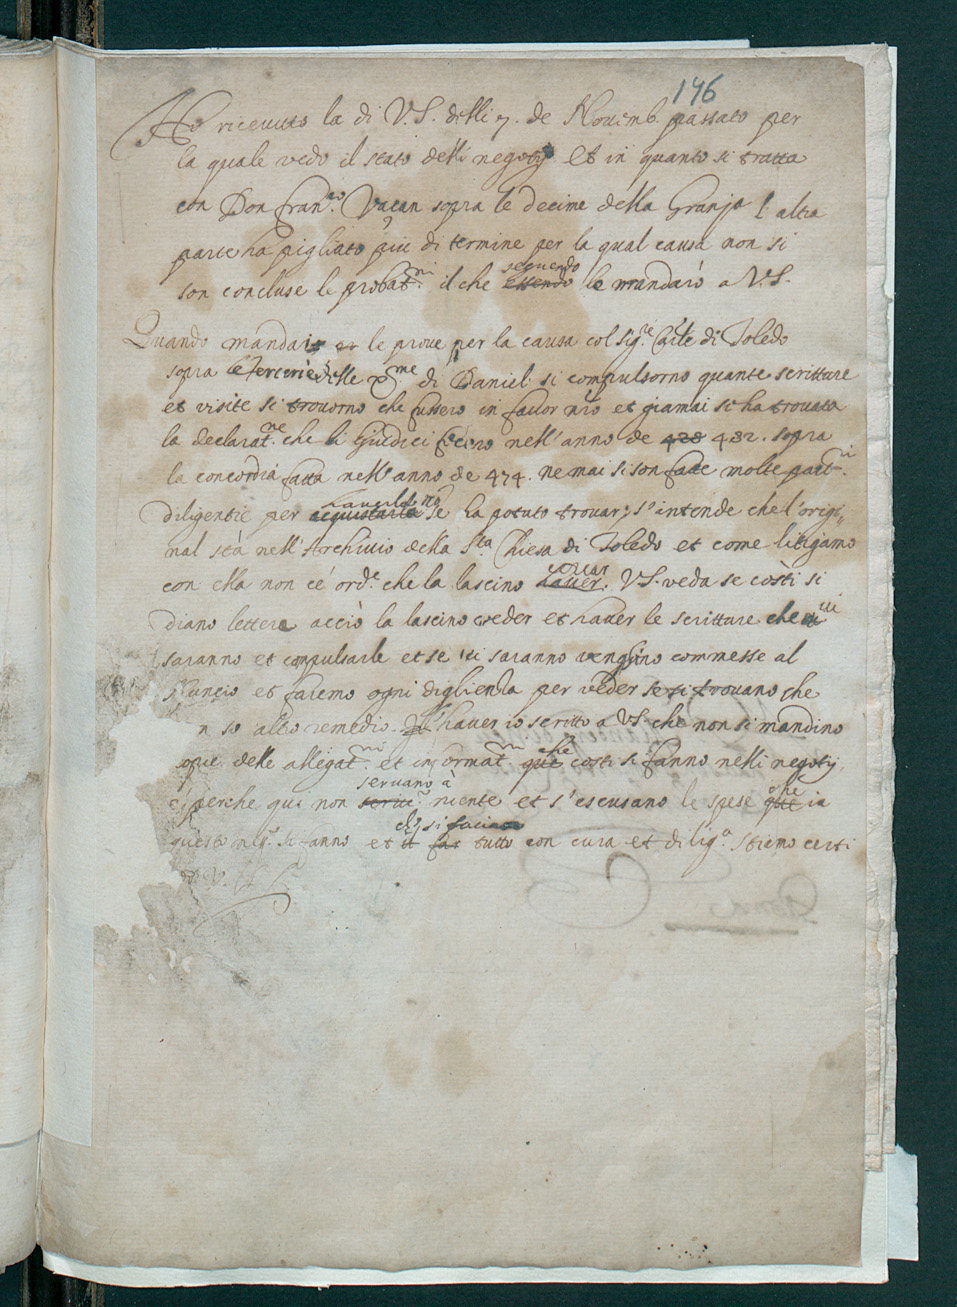 146
Ho ricevuto la di V.S. delli 7. de Novemb. passato per
la quale vedo il stato delli negotij et in quanto si tratta
con Don Fran.co Vacan sopra le decime della Granja l'altra
parte ha pigliato piu di termine per la qual causa non si
son concluse le probat.ni il che essendo seguendo le mandarò a V.S.
Quando mandai le prove per la causa col Sig.re Car.le di Toledo
sopra le Tercerie delle di Daniel si compulsorno quante scritture
et visite si trovorno che fussero in favor nro et giamai si ha trovata
la declarat.ne che li Giudici fecero nell'anno de 428 482. sopra
la concordia fatta nell'anno de 474. ne mai si son fatte molte part.ri
diligentie per acquistarla haverla no se ha potuto trovar; s'intende che l'origi
nal stà nell'Archivio della S.ta Chiesa di Toledo et come litigamo
con ella non c'é ord.e che la lascino haver. V.S. veda se costì si
diano lettere acciò la lascino veder et haver le scritture che vi
saranno et compulsarle et se vi saranno venghino commesse al
Nuncio et faremo ogni diglienza per veder se si trovano che
n so altro remedio. l'haver io scritto a V.S. che non si mandino
qui delle allegat.ni et informat.ni que che costi si fanno nelli negotij
é perche qui non servano à niente et s'escusano le spese que che in
questo neg.o si fanno et il far che si facia tutto con cura et dilig.a stiamo certi
di V.S.